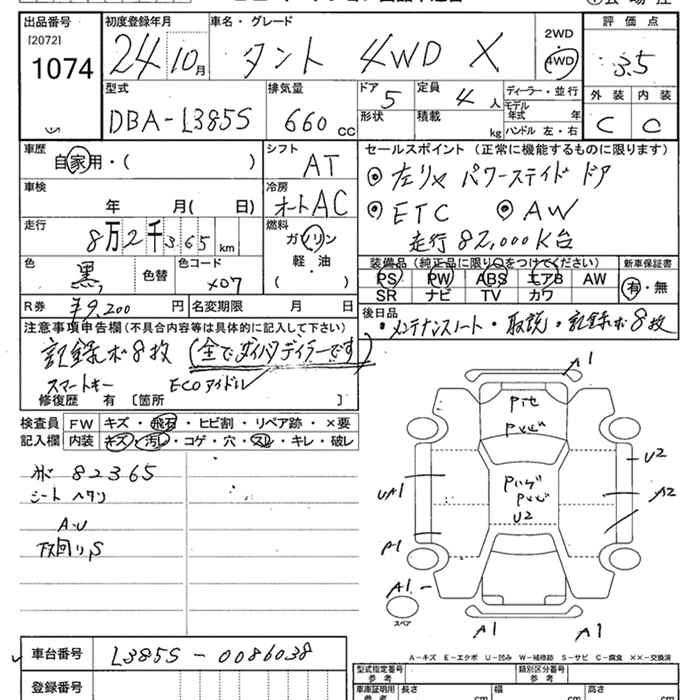 出品番号 初度登録年月 車名・グレード 評価点
[2072]
1074 24 10月 タント 4WD X 2WD 4WD 3.5
型式 DBA-L385S 排気量 660 cc ドア 5 定員 4 人 ディーラー・並行 外装 内装
形状 積載 kg モデル年式 年式 ハンドル 左・右 C C
車歴 自家用・( ) シフト AT セールスポイント (正常に機能するものに限ります)
◎左リヤ パワースライドドア
車検 年 月( 日) 冷房 オートAC ◎ETC ◎AW
走行 8万2千365km 燃料 ガソリン 走行82,000K台
軽・油
( )
色 黒 色替 色コード X07 装備品(純正品に限り○をつけてください) 新車保証書
PS PW ABS エアB AW 有・無
SR ナビ TV カワ
R券 ¥9,200 円 名変期限 月 日 後日品
・メンテナンスノート・取説・記録ボ8枚
注意事項申告欄(不具合内容等は具体的に記入して下さい)
記録ボ8枚 (全てダイハツディーラーです)
スマートキー ECOアイドル
修復歴 有 〔箇所 〕
検査員 FW キズ・飛石・ヒビ割・リペア跡・×要
記入欄 内装 キズ・汚レ・コゲ・穴・スレ・キレ・破レ
82365
シート ヘタリ
A・U
下回りS
A1
U2
UA1
A2
U2
A1
A1
スペア
A1 A1
A-キズ E-エクボ U-凹み W-補修跡 S-サビ C-腐食 ××-交換済
車台番号 L385S-0086038
型式指定番号 類別区分番号
参考 参考
登録番号
車庫証明用 長さ 幅 高さ
参考 cm cm cm